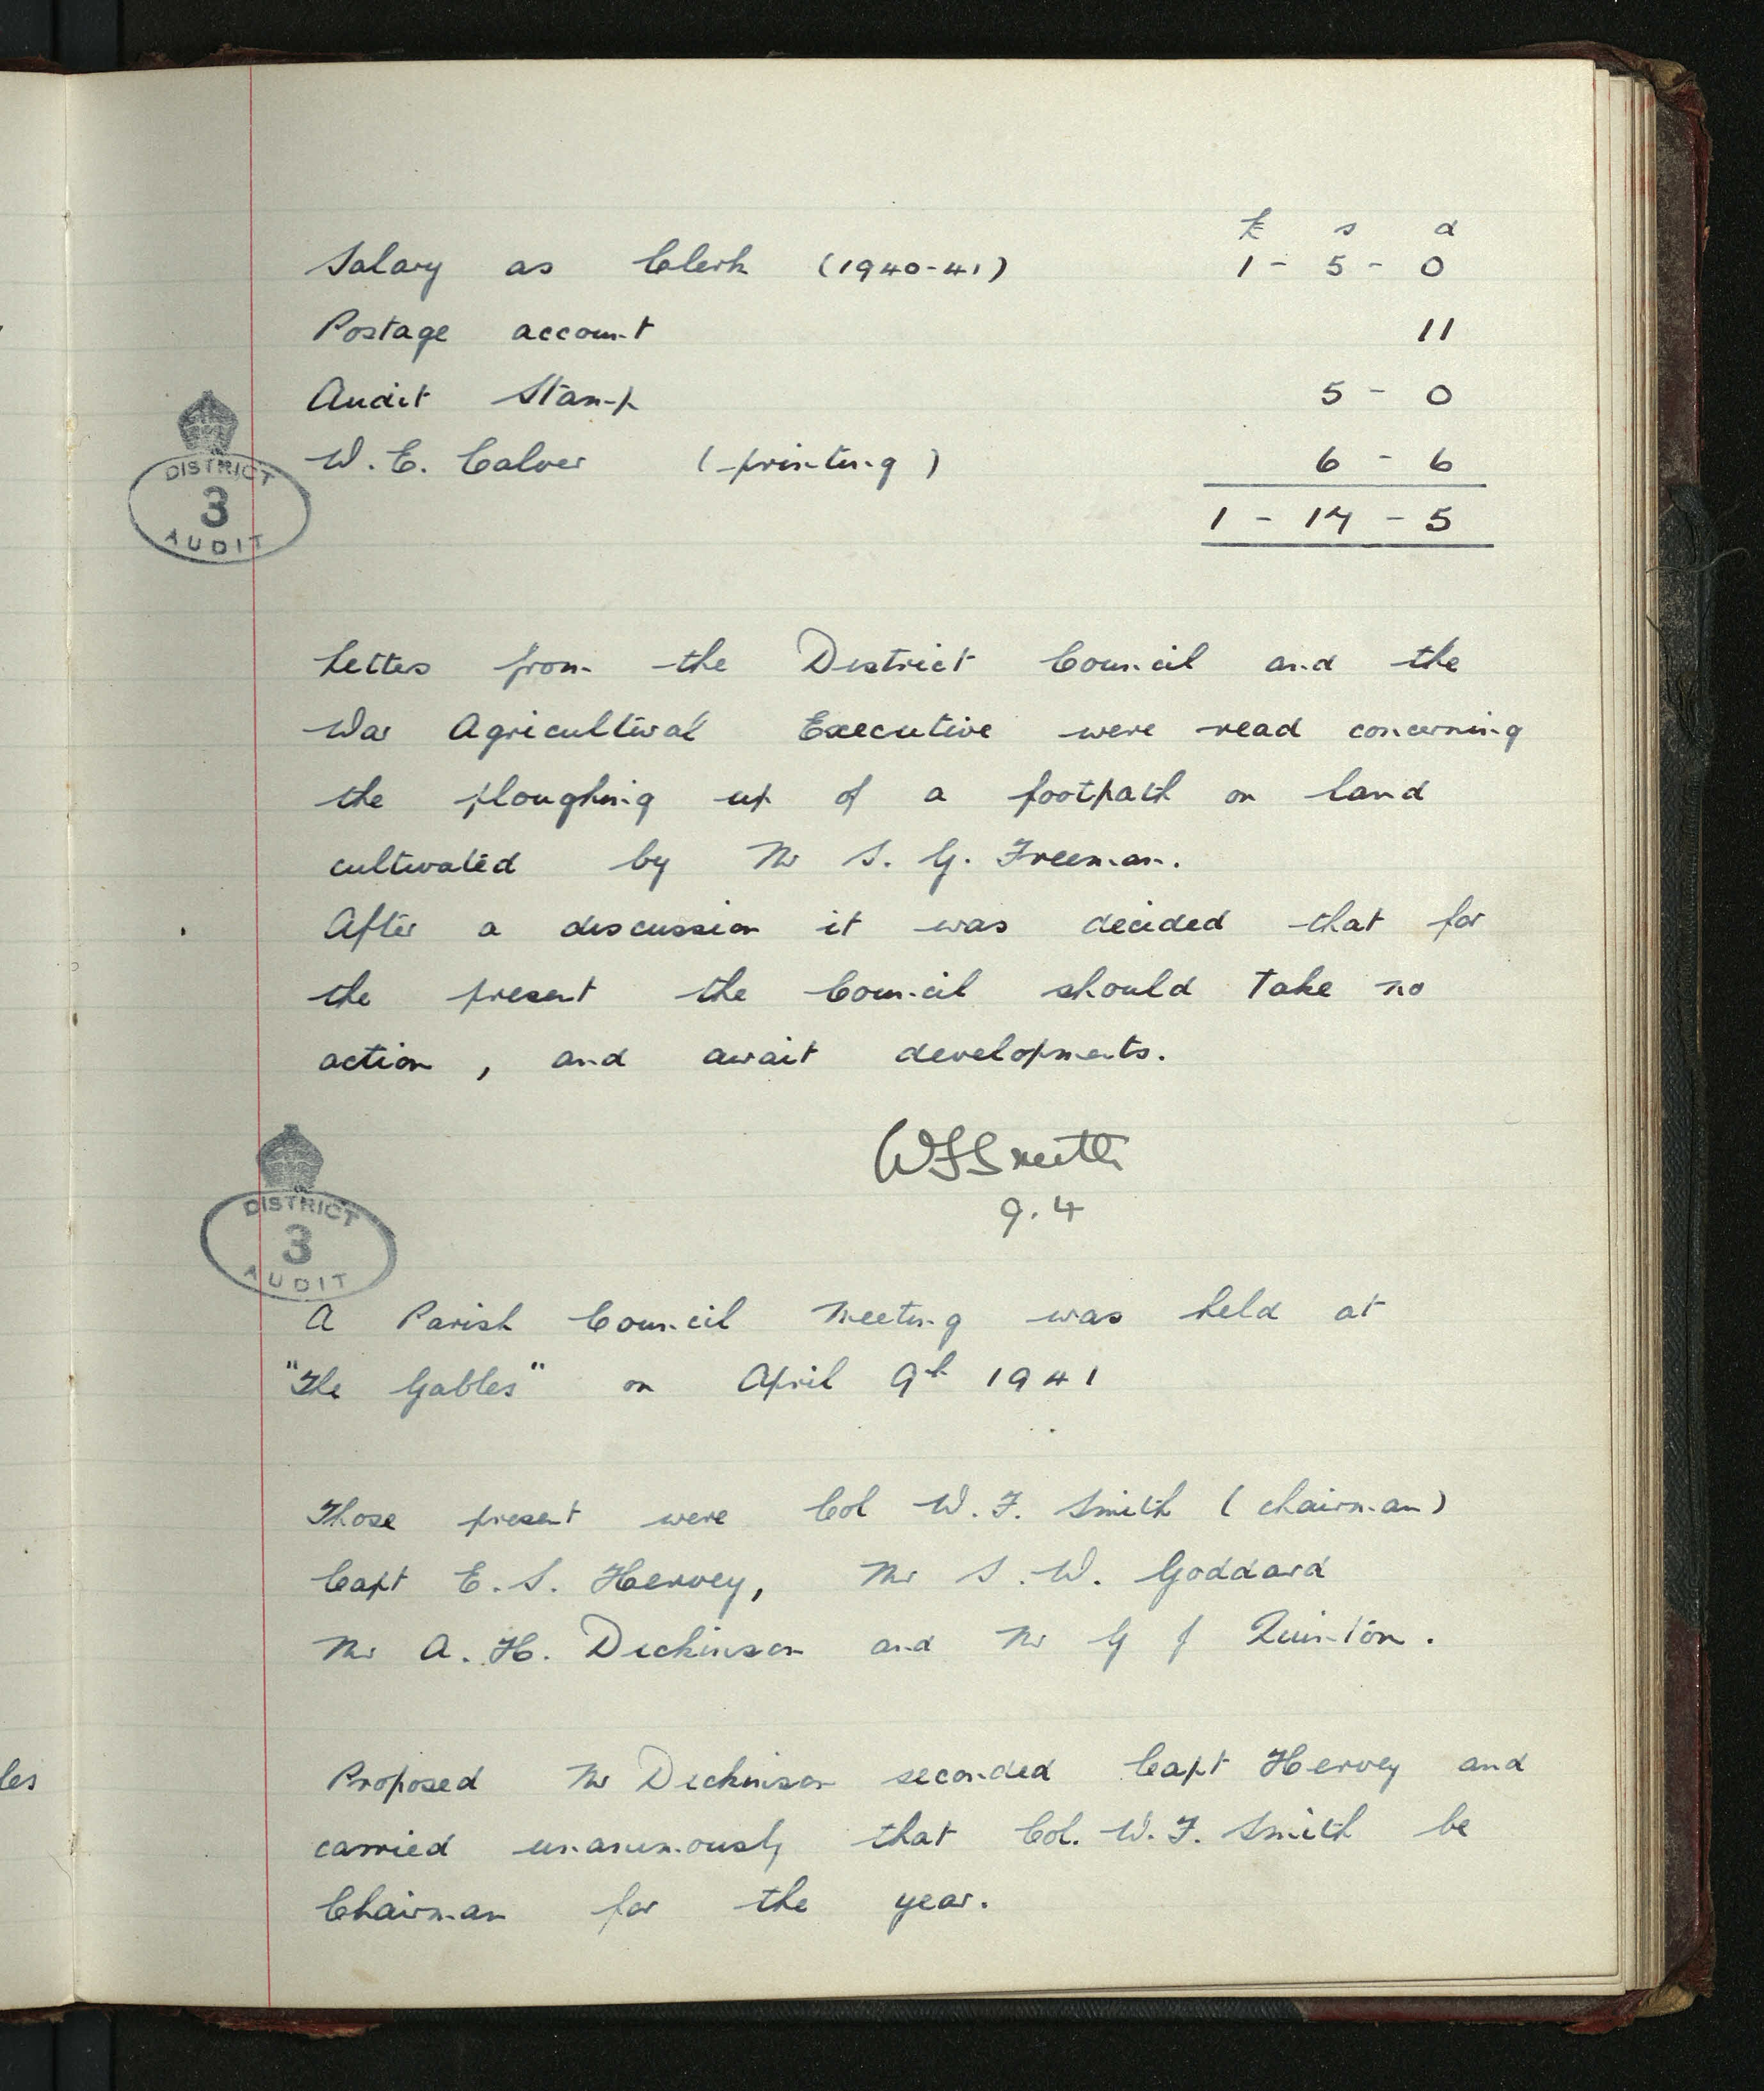 £ s d
Salary as Clerk (1940-41) 1 - 5 - 0
Postage account 11
Audit Stamp 5 - 0
W. E. Calver (printing) 6 - 6
1 - 17 - 5
DISTRICT
3
AUDIT
Letters from the District Council and the
War Agricultural Executive were read concerning
the ploughing up of a footpath on land
cultivated by Mr S. G. Freeman.
After a discussion it was decided that for
the present the Council should take no
action, and await developments.
WF Smith
9.4
DISTRICT
3
AUDIT
A Parish Council Meeting was held at
"The Gables" on April 9th 1941
Those present were Col W. F. Smith (chairman)
Capt E. S. Hervey, Mr S. W. Goddard
Mr A. H. Dickinson and Mr G J Quinton.
Proposed Mr Dickinson seconded Capt Hervey and
carried unanimously that Col. W. F. Smith be
Chairman for the year.